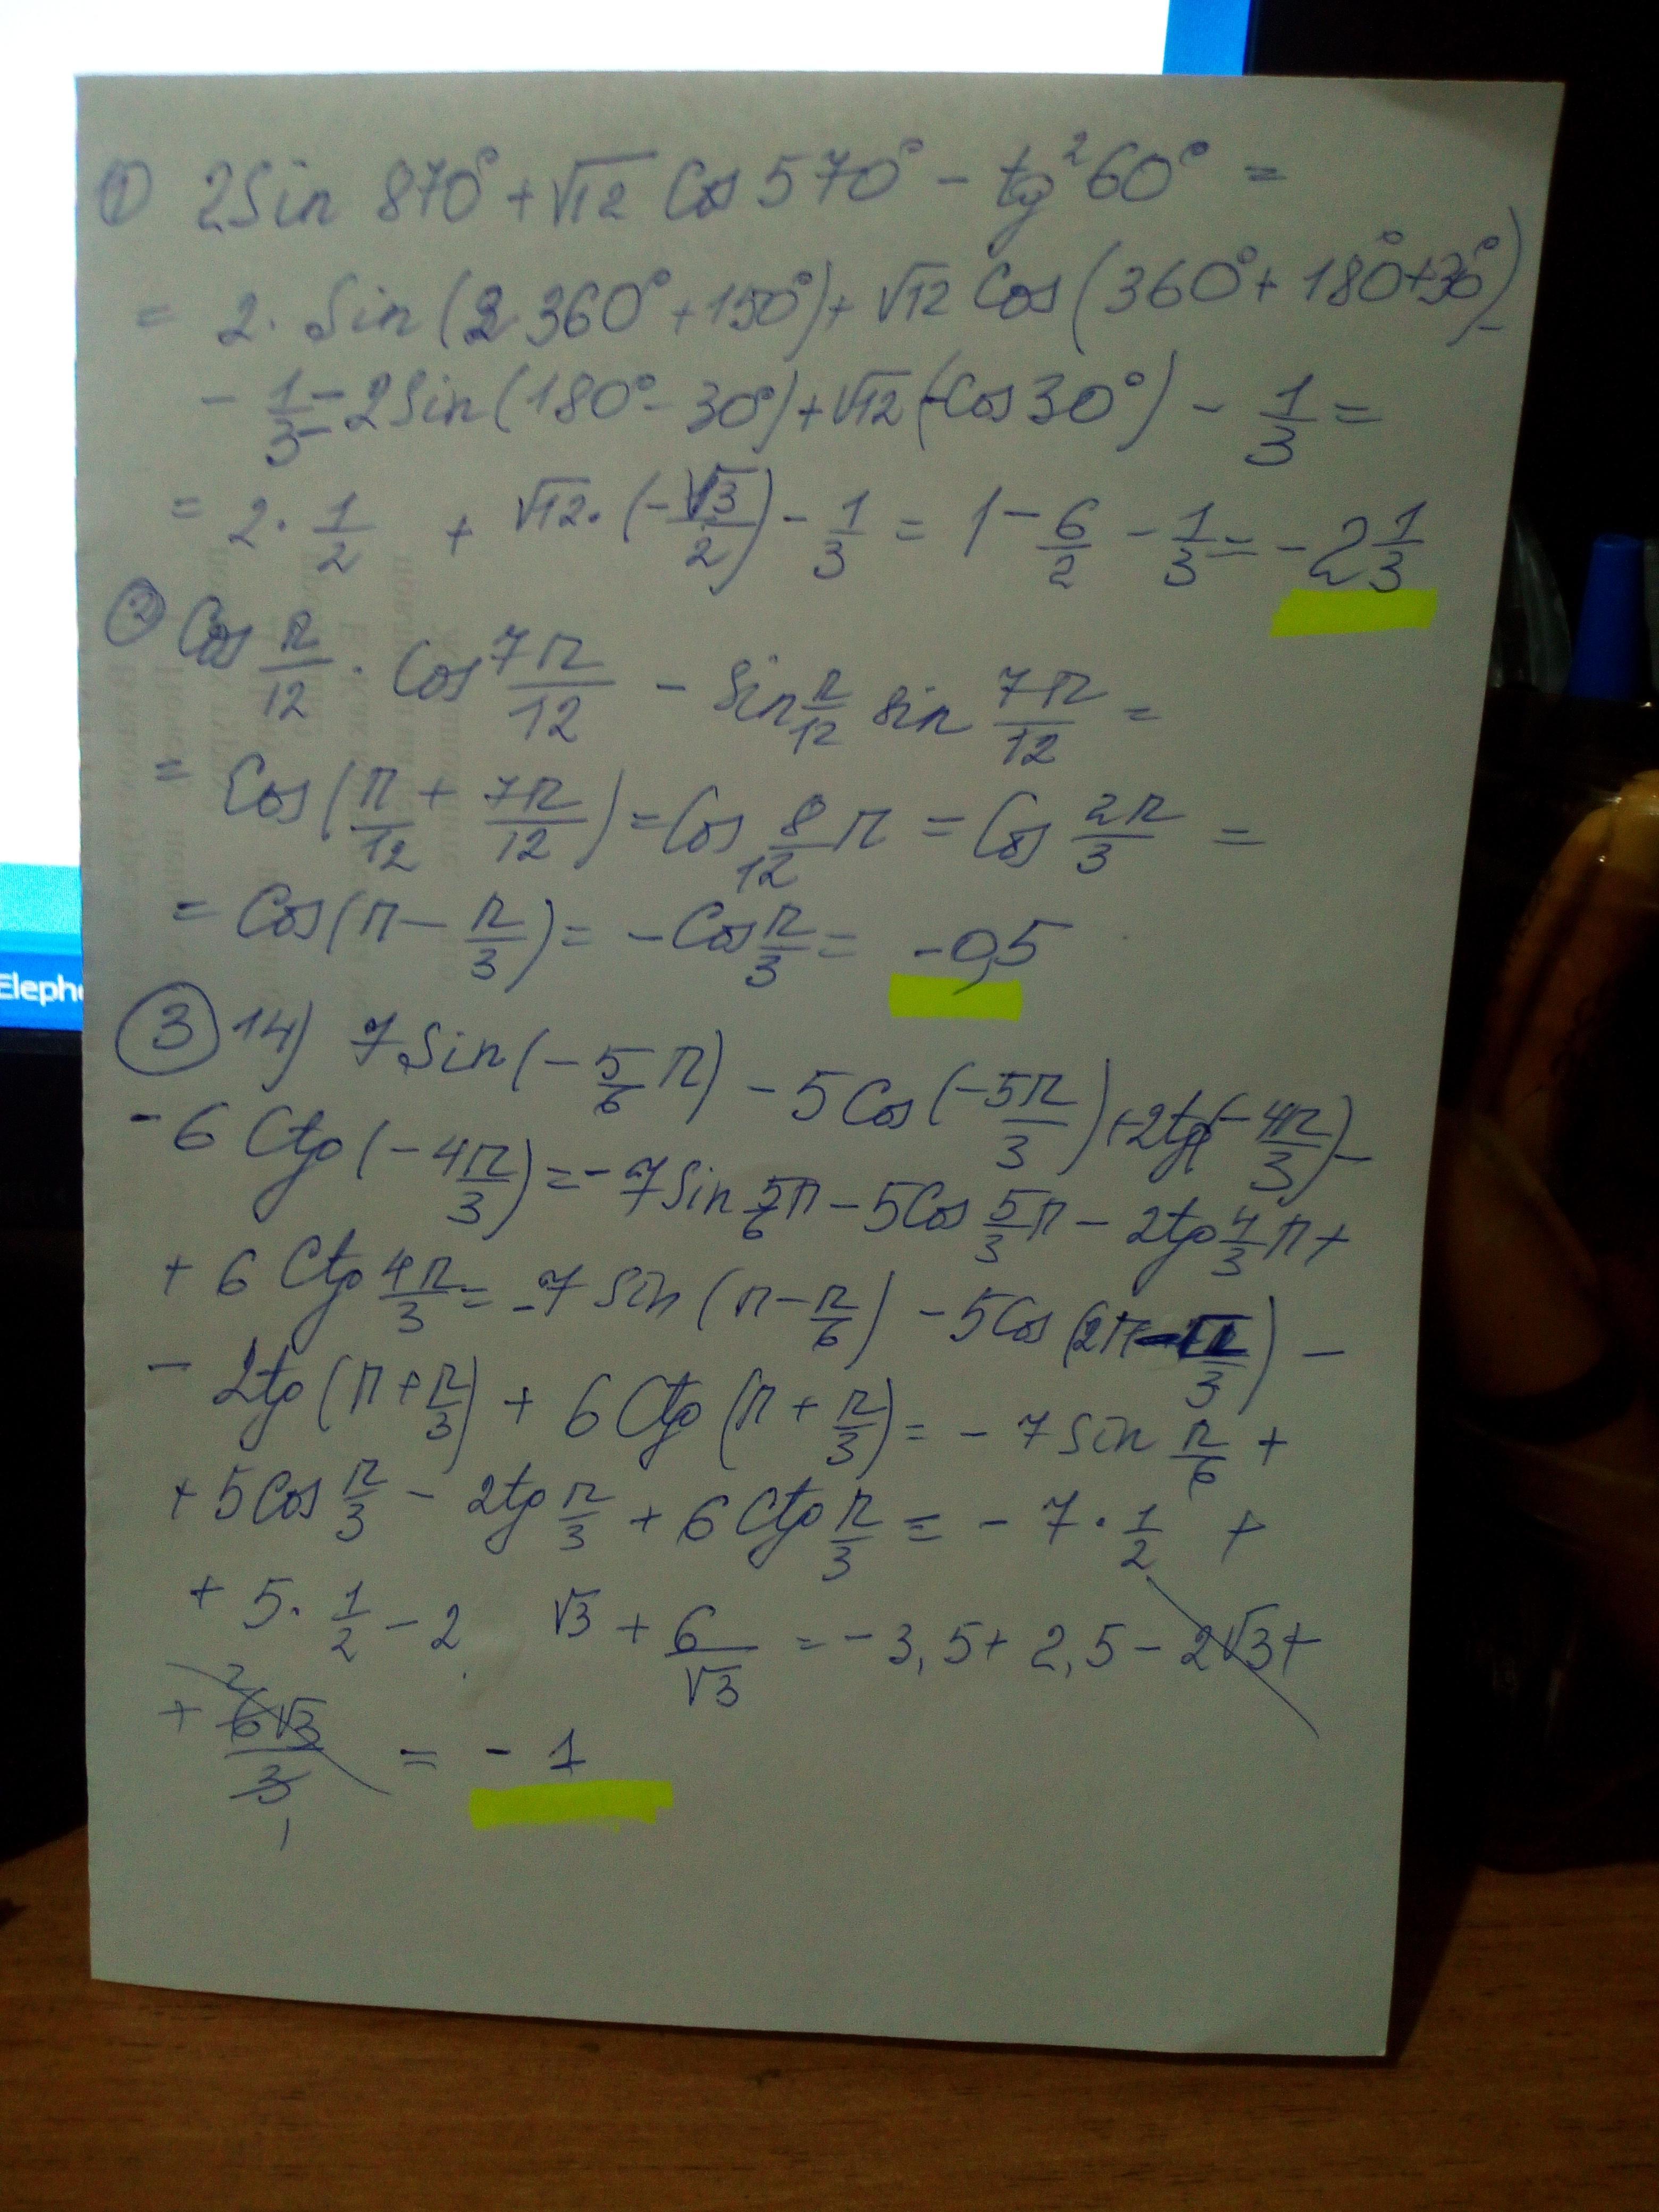 ① 2Sin 870° + √12 Cos 570° - tg²60° =
= 2 · Sin (2 360° + 150°) + √12 Cos (360° + 180° + 30°) -
- 1/3 = 2Sin (180° - 30°) + √12 (-Cos 30°) - 1/3 =
= 2 · 1/2 + √12 · (-√3/2) - 1/3 = 1 - 6/2 - 1/3 = -2 1/3
② Cos π/12 · Cos 7π/12 - Sin π/12 sin 7π/12 =
= Cos (π/12 + 7π/12) = Cos 8/12 π = Cos 2π/3 =
= Cos (π - π/3) = -Cos π/3 = -0,5
Eleph
③ 14) 7Sin (-5/6 π) - 5Cos (-5π/3) + 2tg (-4π/3) -
- 6 Ctg (-4π/3) = -7Sin 5/6 π - 5Cos 5/3 π - 2tg 4/3 π +
+ 6 Ctg 4π/3 = -7 Sin (π - π/6) - 5Cos (2π - π/3) -
- 2tg (π + π/3) + 6 Ctg (π + π/3) = - 7Sin π/6 +
+ 5Cos π/3 - 2tg π/3 + 6 Ctg π/3 = - 7 · 1/2 +
+ 5 · 1/2 - 2 √3 + 6/√3 = -3,5 + 2,5 - 2√3 +
+ 6√3/3 = - 1